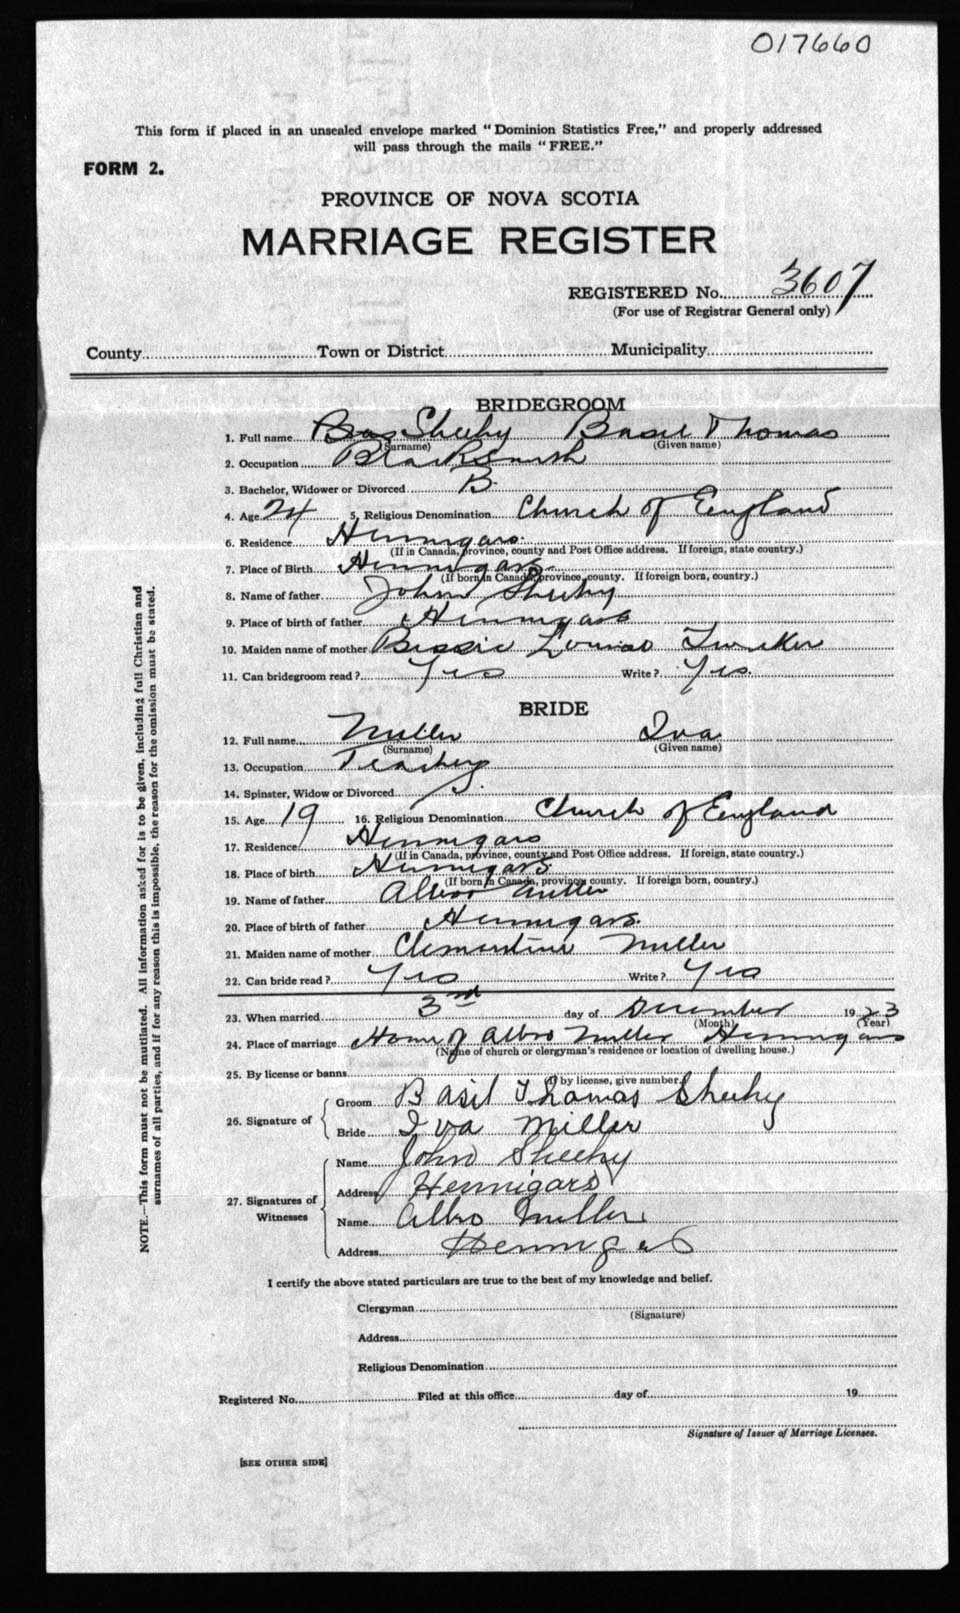 017660
This form if placed in an unsealed envelope marked "Dominion Statistics Free," and properly addressed
will pass through the mails "FREE."
FORM 2.
PROVINCE OF NOVA SCOTIA
MARRIAGE REGISTER
REGISTERED No. 3607
(For use of Registrar General only)
County Town or District Municipality
BRIDEGROOM
1. Full name Sheehy Basil Thomas
(Surname) (Given name)
2. Occupation Blacksmith
3. Bachelor, Widower or Divorced B.
4. Age 24 5. Religious Denomination Church of England
6. Residence Hennigars.
(If in Canada, province, county and Post Office address. If foreign, state country.)
7. Place of Birth Hennigars
(If born in Canada, province, county. If foreign born, country.)
8. Name of father John Sheehy
9. Place of birth of father Hennigars
10. Maiden name of mother Bessie
11. Can bridegroom read? Yes Write? Yes.
BRIDE
12. Full name Miller Iva
(Surname) (Given name)
13. Occupation
14. Spinster, Widow or Divorced S.
15. Age 19 16. Religious Denomination Church of England
17. Residence Hennigars
(If in Canada, province, county and Post Office address. If foreign, state country.)
18. Place of birth Hennigars
(If born in Canada, province county. If foreign born, country.)
19. Name of father Albro Miller
20. Place of birth of father Hennigars.
21. Maiden name of mother Clementine Miller
22. Can bride read? Yes Write? Yes
23. When married 3rd day of December 1923
(Month) (Year)
24. Place of marriage Home of Albro Miller Hennigars
(Name of church or clergyman's residence or location of dwelling house.)
25. By license or banns
(If by license, give number.)
26. Signature of
Groom Basil Thomas Sheehy
Bride Iva Miller
27. Signatures of Witnesses
Name John Sheehy
Address Hennigars
Name Albro Miller
Address Hennigars
I certify the above stated particulars are true to the best of my knowledge and belief.
Clergyman
(Signature)
Address
Religious Denomination
Registered No. Filed at this office day of 19
Signature of Issuer of Marriage Licenses.
[SEE OTHER SIDE]
NOTE.—This form must not be mutilated. All information asked for is to be given, including full Christian and
surnames of all parties, and if for any reason this is impossible, the reason for the omission must be stated.